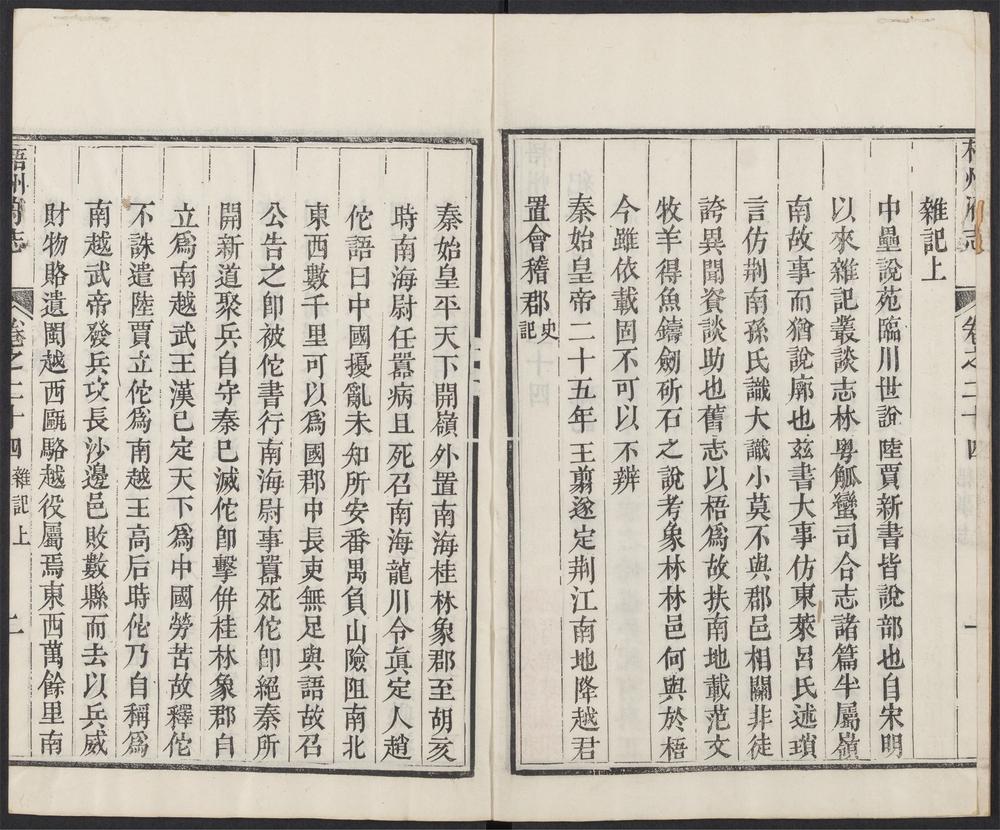 梧州府志 卷之二十四 一
雜記上
中壘說苑臨川世說陸賈新書皆說部也自宋明
以來雜記叢談志林粵觚蠻司合志諸篇半屬嶺
南故事而猶說廓也玆書大事仿東萊呂氏述瑣
言仿荆南孫氏識大識小莫不與郡邑相關非徒
誇異聞資談助也舊志以梧爲故扶南地載范文
牧羊得魚鑄劒斫石之說考象林林邑何與於梧
今雖依載固不可以不辨
秦始皇帝二十五年王翦遂定荆江南地降越君
置會稽郡史記
秦始皇平天下開嶺外置南海桂林象郡至胡亥
時南海尉任嚻病且死召南海龍川令眞定人趙
佗語曰中國擾亂未知所安番禺負山險阻南北
東西數千里可以爲國郡中長吏無足與語故召
公告之卽被佗書行南海尉事嚻死佗卽絕秦所
開新道聚兵自守秦已滅佗卽擊併桂林象郡自
立爲南越武王漢已定天下爲中國勞苦故釋佗
不誅遣陸賈立佗爲南越王高后時佗乃自稱爲
南越武帝發兵攻長沙邊邑敗數縣而去以兵威
財物賂遺閩越西甌駱越役屬焉東西萬餘里南
梧州府志 卷之二十四 雜記上 二